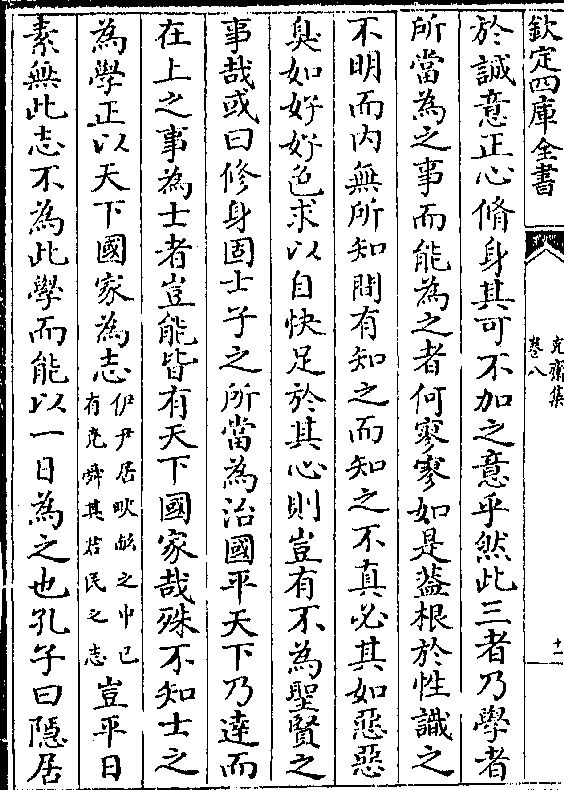 欽定四庫全書
克齋集
卷八
十一
於誠意正心脩身其可不加之意乎然此三者乃學者
所當為之事而能為之者何寥寥如是葢根於性識之
不明而內無所知間有知之而知之不真必其如惡惡
臭如好好色求以自快足於其心則豈有不為聖賢之
事哉或曰修身固士子之所當為治國平天下乃達而
在上之事為士者豈能皆有天下國家哉殊不知士之
為學正以天下國家為志伊尹居畎畝之中已有堯舜其君民之志豈平日
素無此志不為此學而能以一日為之也孔子曰隱居